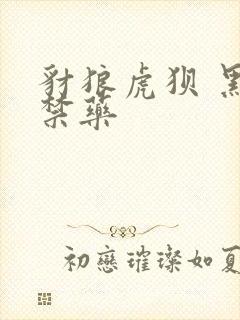 豺狼虎狈
禁药
初戀璀璨如夏